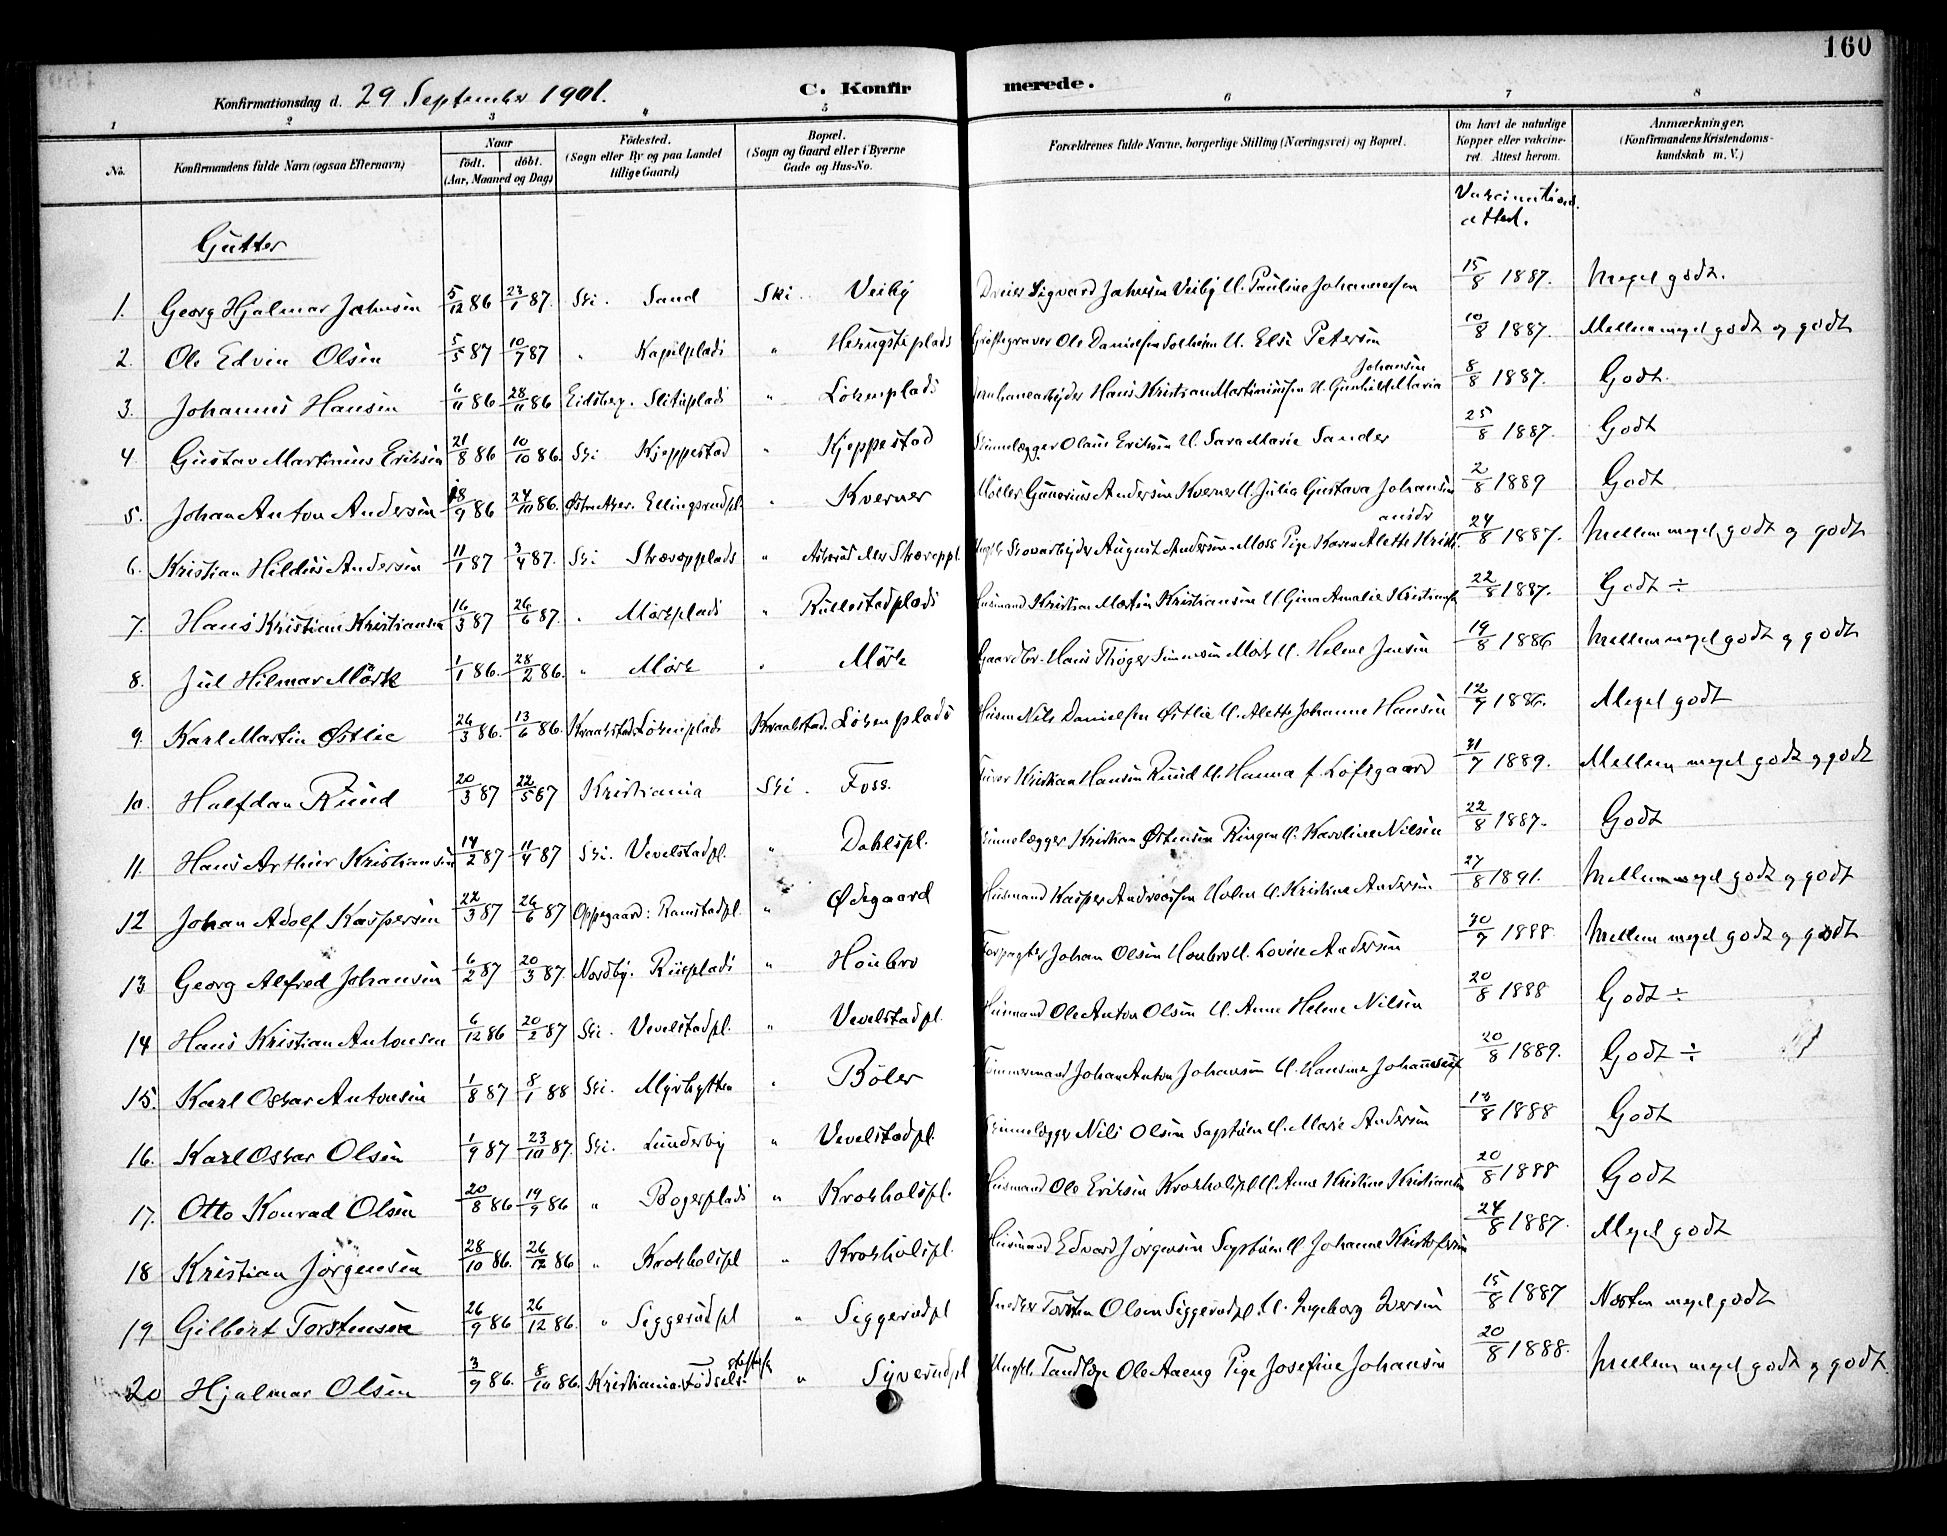 160
Konfirmationsdag d. 29 September 1901. C. Konfir merede.
1 2 3 4 5 6 7 8
No. Konfirmandens fulde Navn (ogsaa Efternavn) Naar født. döbt. (Aar, Maaned og Dag) Födested. (Sogn eller By og paa Landet tillige Gaard) Bopæl. (Sogn og Gaard eller i Byerne Gade og Hus-No. Forældrenes fulde Navne, borgerlige Stilling (Næringsvei) og Bopæl. Om havt de naturlige Kopper eller vakcineret. Attest herom. Anmærkninger. (Konfirmandens Kristendomskundskab m. V.)
Vakcinations attest.
Gutter
1. Georg Hjalmar Jahnsen 5/12 86 23/1 87. Ski. Sand Ski. Veiby Dreier Sigvard Jahnsen Veiby U. Pauline Johannessen 15/8 1887. Meget godt.
2. Ole Edvin Olsen 5/5 87 10/7 87 " Kapelplads " Grøftegraver Ole Danielsen Solheim U. Else Petersen 10/8 1887. Mellem meget godt og godt
3. Johannes Hansen 6/11 86 28/11 86 Eidsberg. " Løkenplads Hans Kristian Martiniussen U. Gunhild Maria Johansen 8/8 1887. Godt.
4. Gustav Martinius Eriksen 21/8 86 10/10 86. Ski Kjeppestad " Kjeppestad Olaus Eriksen U. Sara Marie Sander 25/8 1887. Godt
5. Johan Anton Andersen 18/9 86 24/10 86. Østre Aker. Ellingsrudpl. " Kverner Møller Gunerius Andersen Kverner U. Julia Gustava Johansen 2/8 1889 Godt
6. Kristian Hildus Andersen 11/1 87 3/4 87. Ski Skoarbeider August Andersen Moss Pige Karen Alette Kristiansdr 24/8 1887. Mellem meget godt og godt
7. Hans Kristian Kristiansen 16/3 87 26/6 87. " Mørkplads " Rullestadplads Husmand Kristian Martin Kristiansen U Gina Amalie Kristiansen 22/8 1887. Godt ÷
8. Jul Hilmar Mörk 1/1 86. 28/2 86. " Mörk " Mörk Gaardbr. Hans Thøger Simensen Mörk U. Helene Jensen 19/8 1886 Mellem meget godt og godt
9. Karl Martin Østlie 26/3 86. 13/6 86. Kraakstad. Løkenplads Kraakstad. Løkenplads Husm Nils Danielsen Østlie U. Alette Johanne Hansen 12/9 1886. Meget godt
10. Halfdan Ruud 20/3 87 22/5 87 Kristiania Ski. Foss. Kristian Hansen Ruud U. Hanna f. Løfsgaard 31/7 1889. Mellem meget godt og godt
11. Hans Arthur Kristiansen 14/2 87 11/4 87 Ski. Vevelstadpl. " Dahlspl. Kristian Østensen Ringen U. Karoline Nilsen 22/8 1887. Godt
12 Johan Adolf Kaspersen 22/3 87 26/6 87 Oppegaard: Ramstadpl. " Ødegaard Husmand Kasper Andreassen Holm U. Kristine Andersen 27/8 1891. Mellem meget godt og godt
13 Georg Alfred Johansen 6/2 87 20/3 87. Nordby. " Haubro Forpagter Johan Olsen Haubro U. Lovise Andersen 30/7 1888 Mellem meget godt og godt
14 Hans Kristian Antonsen 6/12 86 20/2 87 Ski. Vevelstadpl. " Vevelstadpl. Husmand Ole Anton Olsen U. Anne Helene Nilsen 20/8 1888 Godt ÷
15. Karl Oskar Antonsen 1/8 87 8/1 88 Ski. Myrhytten " Bøler Tømmermand Johan Anton Johansen U. Hansine Johannesen 20/8 1889. Godt ÷
16. Karl Oskar Olsen 1/9 87 23/10 87. Ski. Lunderby " Vevelstadpl. Nils Olsen U. Marie Andersen 13/8 1888 Godt
17. Otto Konrad Olsen 20/8 86 19/9 86 " Bogerplads " Krokholspl. Husmand Ole Eriksen Krokholspl U Anne Kristine Kristiansen 20/8 1888 Godt
18 Kristian Jørgensen 28/10 86. 26/12 86 " Krokholspl " Krokholspl. Husmand Edvard Jørgensen U Johanne Kristofersen 24/8 1887. Meget godt
19 Gilbert Torstensen 26/9 86 26/12 86. " Siggerudpl " Siggerudpl Snedker Torsten Olsen Siggerudpl. U. Ingeborg Iversen 15/8 1887 Næsten meget godt
20 Hjalmar Olsen 3/9 86. 8/10 86. Kristiania. Fødselsstiftelse " Syverudpl Ungk. Tandlæge Ole Aaeng Pige Josefine Johansen 20/8 1888. Mellem meget godt og godt